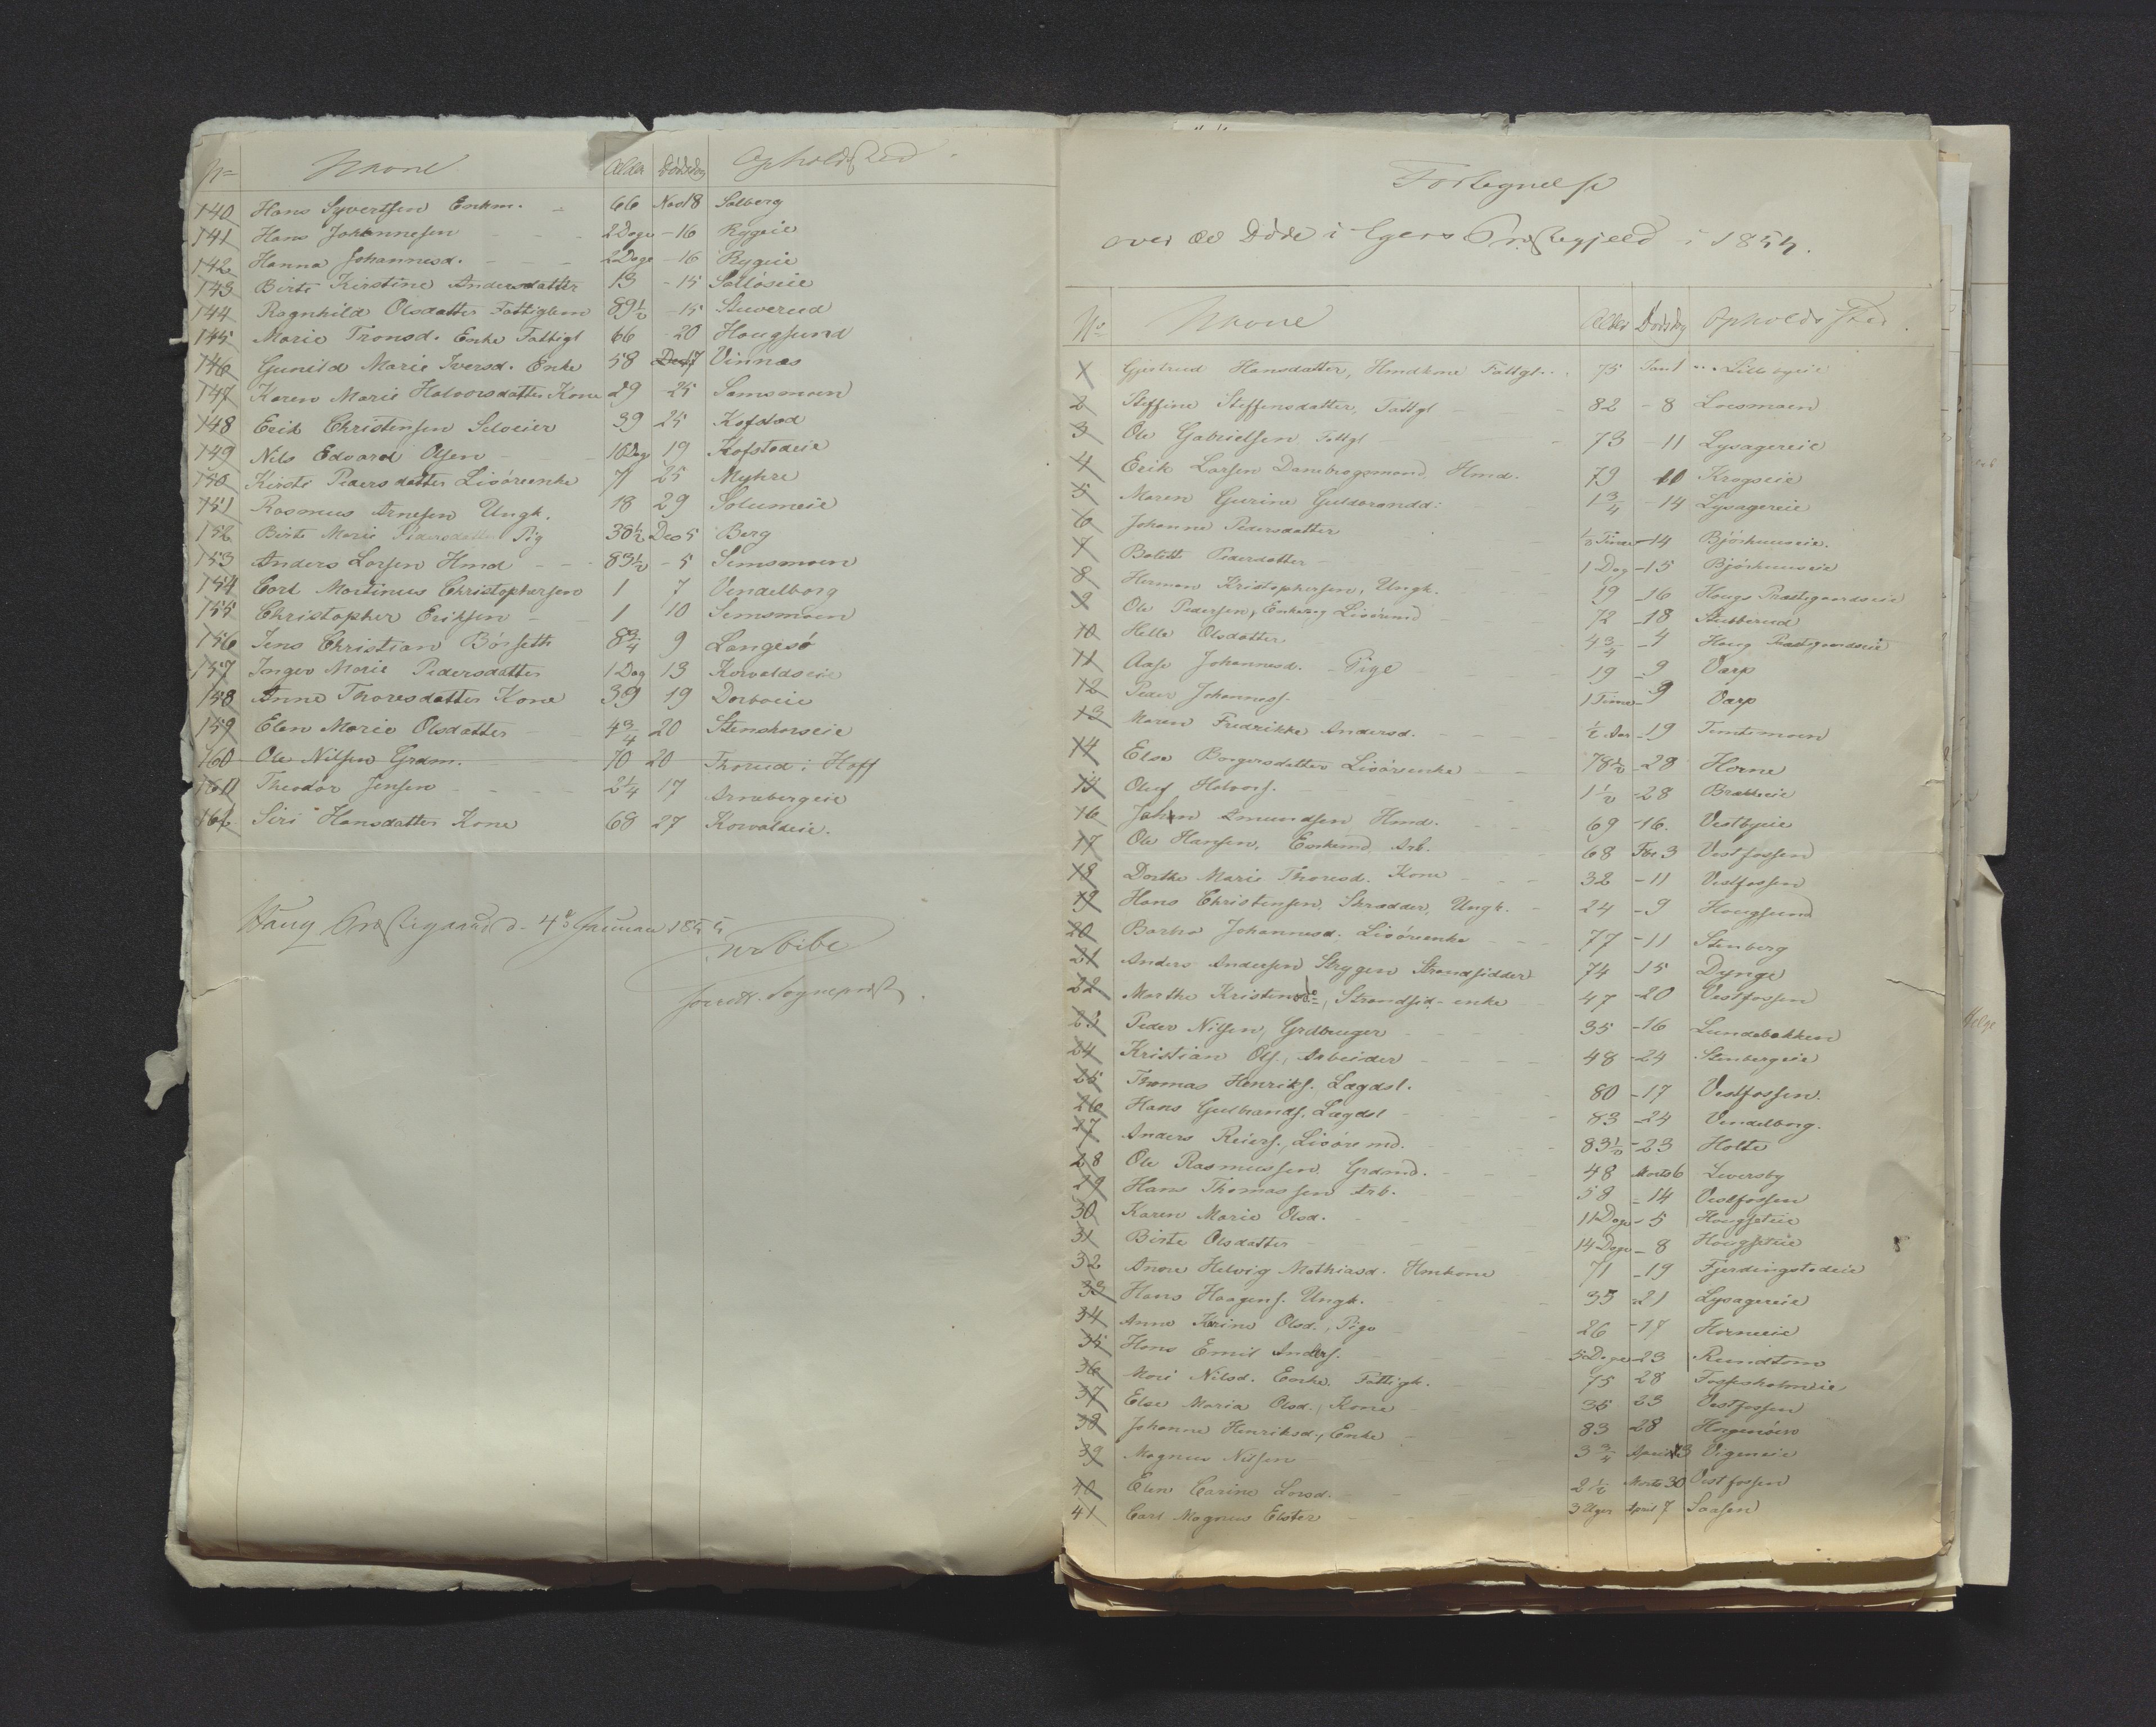 No Navne Alder Dødsdag Opholdssted
140 Hans Syvertsen Enkm. 66 Nov 18 Solberg
141 Hans Johannesen 2 Dage - 16 Rygeie
142 Hanna Johannesd. 2 Dage - 16 Rygeie
143 Birte Kirstine Andersdatter 13 - 15
144 Ragnhild Olsdatter Fattiglem 89½ - 15
145 Marie Tronsd. Enke Fattigl 66 20 Hougsund
146 Gunild Marie Iversd. Enke 58 Vinnæs
147 Karen Marie Halvorsdatter Kone 29 25 Semsmoen
148 Erik Christensen Selveier 39 25 Kofstad
149 Nils Edvard Olsen 19 Kofstadeie
150 Kirsti Pedersdatter Livørenke 71 25 Myhre
151 Rasmus Arnesen Ungk. 18 29 Solumeie
152 Birte Marie Pedersdatter Pig 30½ Dec 5 Berg
153 Anders Larsen Hmd 83½ - 5 Semsmoen
154 Carl Martinus Christophersen 1 7 Vendelborg
155 Christopher Eriksen 1 10 Semsmoen
156 Jens Christian Børseth 8¾ 9 Langesø
157 Inger Marie Pedersdatter 1 Dag 13 Korvaldseie
158 Anne Thoresdatter Kone 39 19
159 Elen Marie Olsdatter 4¾ 20 Stenshorseie
160 Ole Nilsen Grdm. 70 20 Thorud i Hoff
160 Theodor Jensen 2¼ 17 Arnebergeie
161 Siri Hansdatter Kone 68 27 Korvaldeie.
Haug Præstegaard d. 4de Januar 1855
Fr Vibe
Sognepræst.
Fortegnelse
over de Døde i Egers Præstegjeld i 1854.
No Navne Alder Dødsdag Opholdssted.
1 Gjertrud Hansdatter, Hmdkone Fattgl. 75 Jan 1 Lillebyeie
2 Steffine Steffensdatter, Fattgl 82 - 8 Loesmoen
3 Ole Gabrielsen Fattgl 73 - 11 Lysagereie
4 Erik Larsen Danebrogsmand Hmd. 79 11 Krogseie
5 Maren Gurine Guldbrandd: 1¾ - 14 Lysagereie
6 Johanne Pedersdatter ½ Time - 14 Bjørkuuseie.
7 Boletth Pedersdatter 1 Dag - 15 Bjørkuuseie
8 Herman Kristophersen, Ungk. 19 - 16 Hougs Præstegaardseie
9 Ole Pedersen, Enkem, Livøremd 72 - 18 Stubberud
10 Helle Olsdatter 4¾ - 4 Houg Præstegaardseie
11 Aase Johannesd. - Pige 19 - 9 Varp
12 Peder Johanness. 1 Time - 9 Varp
13 Maren Fredrikke Andersd. ½ Aar - 19 Temtemoen
14 Else Borgersdatter Livørenke 78½ - 28 Horne
15 Oluf Halvors. 1½ - 28
16 Johan Amundsen Hmd. 69 - 16. Vestbyeie
17 Ole Hansen, Enkemd Arb. 68 Feb 3 Vestfossen
18 Dorthe Marie Thoresd. Kone 32 - 11 Vestfossen
19 Hans Christensen, Skrædder, Ungk. 24 - 9 Hougsund
20 Barbra Johannesd. Livørenke 77 - 11 Stenberg
21 Anders Andersen Strygen Strandsidder 74 15 Dynge
22 Marthe Kristensd, Strandsid-enke 47 - 20 Vestfossen
23 Peder Nilsen, Grdbruger 35 - 16 Lundebakken
24 Kristian Ols., Arbeider 48 - 24 Stenbergeie
25 Thomas Henriks. Lægdsl. 80 - 17 Vestfossen.
26 Hans Gulbrands. Lægdsl 83 - 24 Vendelborg.
27 Anders Reiers., Livøremd. 83½ - 23 Holte
28 Ole Rasmussen Grdmd. 48 Marts 6 Leversby
29 Hans Thomassen Arb. 58 - 14 Vestfossen
30 Karen Marie Olsd. 11 Dage - 5 Hougseteie
31 Birte Olsdatter 14 Dage - 8 Hougseteie
32 Anne Helvig Mathiasd. Hmkone 71 - 19 Fjerdingstadeie
33 Hans Haagens. Ungk. 35 - 21 Lysagereie
34 Anne Karine Olsd., Pige 26 - 17 Horneeie
35 Hans Emil Anders. 5 Dage - 23 Rundtom
36 Mari Nilsd. Enke. Fattigk. 75 28 Fossesholmeie
37 Else Maria Olsd., Kone 35 23 Vestfossen
38 Johanne Henriksd., Enke 83 28
39 Magnus Nilsen 3¾ April 3 Vigeneie
40 Elen Carine Larsd. 2½ Marts 30 Vestfossen
41 Carl Magnus Elster 3 Uger April 7 Saasen